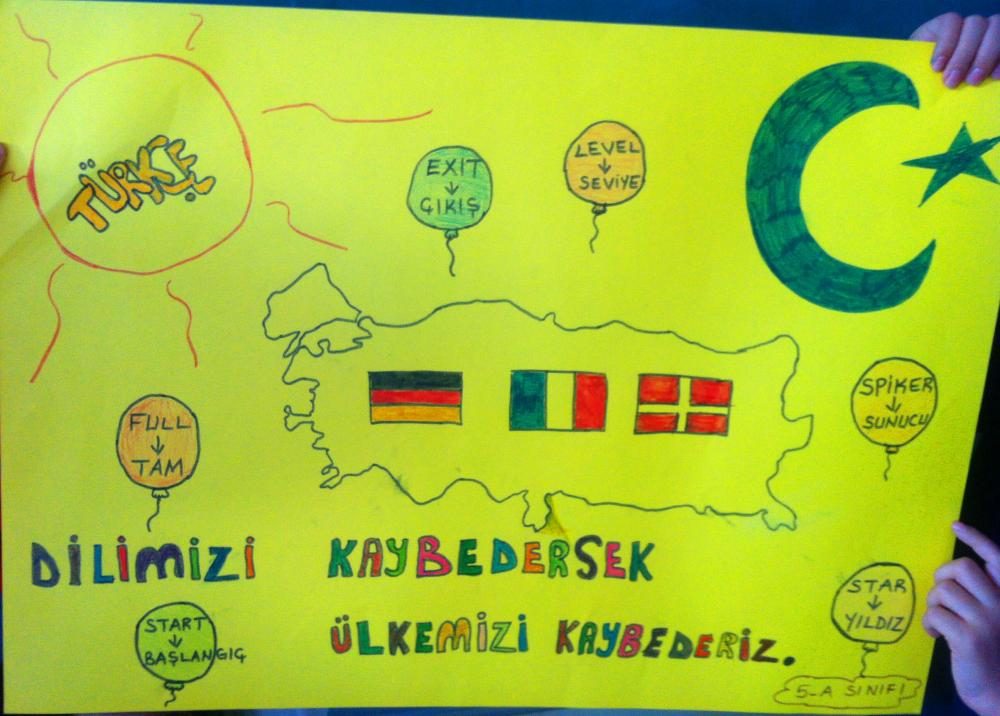 TÜRKÇE
EXIT
ÇIKIŞ
LEVEL
SEVİYE
FULL
TAM
SPİKER
SUNUCU
DİLİMİZİ KAYBEDERSEK
ÜLKEMİZİ KAYBEDERİZ.
START
BAŞLANGIÇ
STAR
YILDIZ
5-A SINIFI